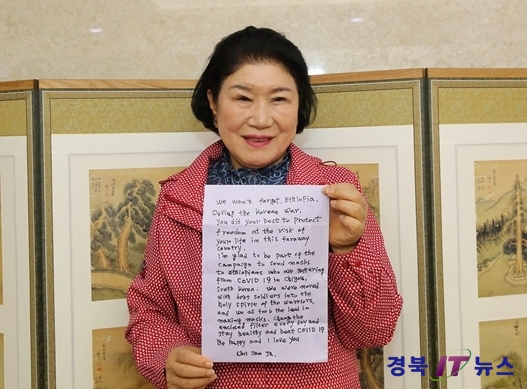 We won't forget, Ethiopia.
During the Korean war.
You did your best to protect
freedom at the risk of
your life in this faraway
country.
I'm glad to be part of the
campaign to send masks
to ethiopians who are suffering
from COVID 19 in Chilgok,
South Korea. We were moved
with 6037 soldiers into the
holy spirit of the warriors,
and we all took the lead in
making masks. Change the
enclosed filter every day and
stay healthy and beat COVID 19
Be happy and I love you
Choi Sam Ja.
경북 IT 뉴스